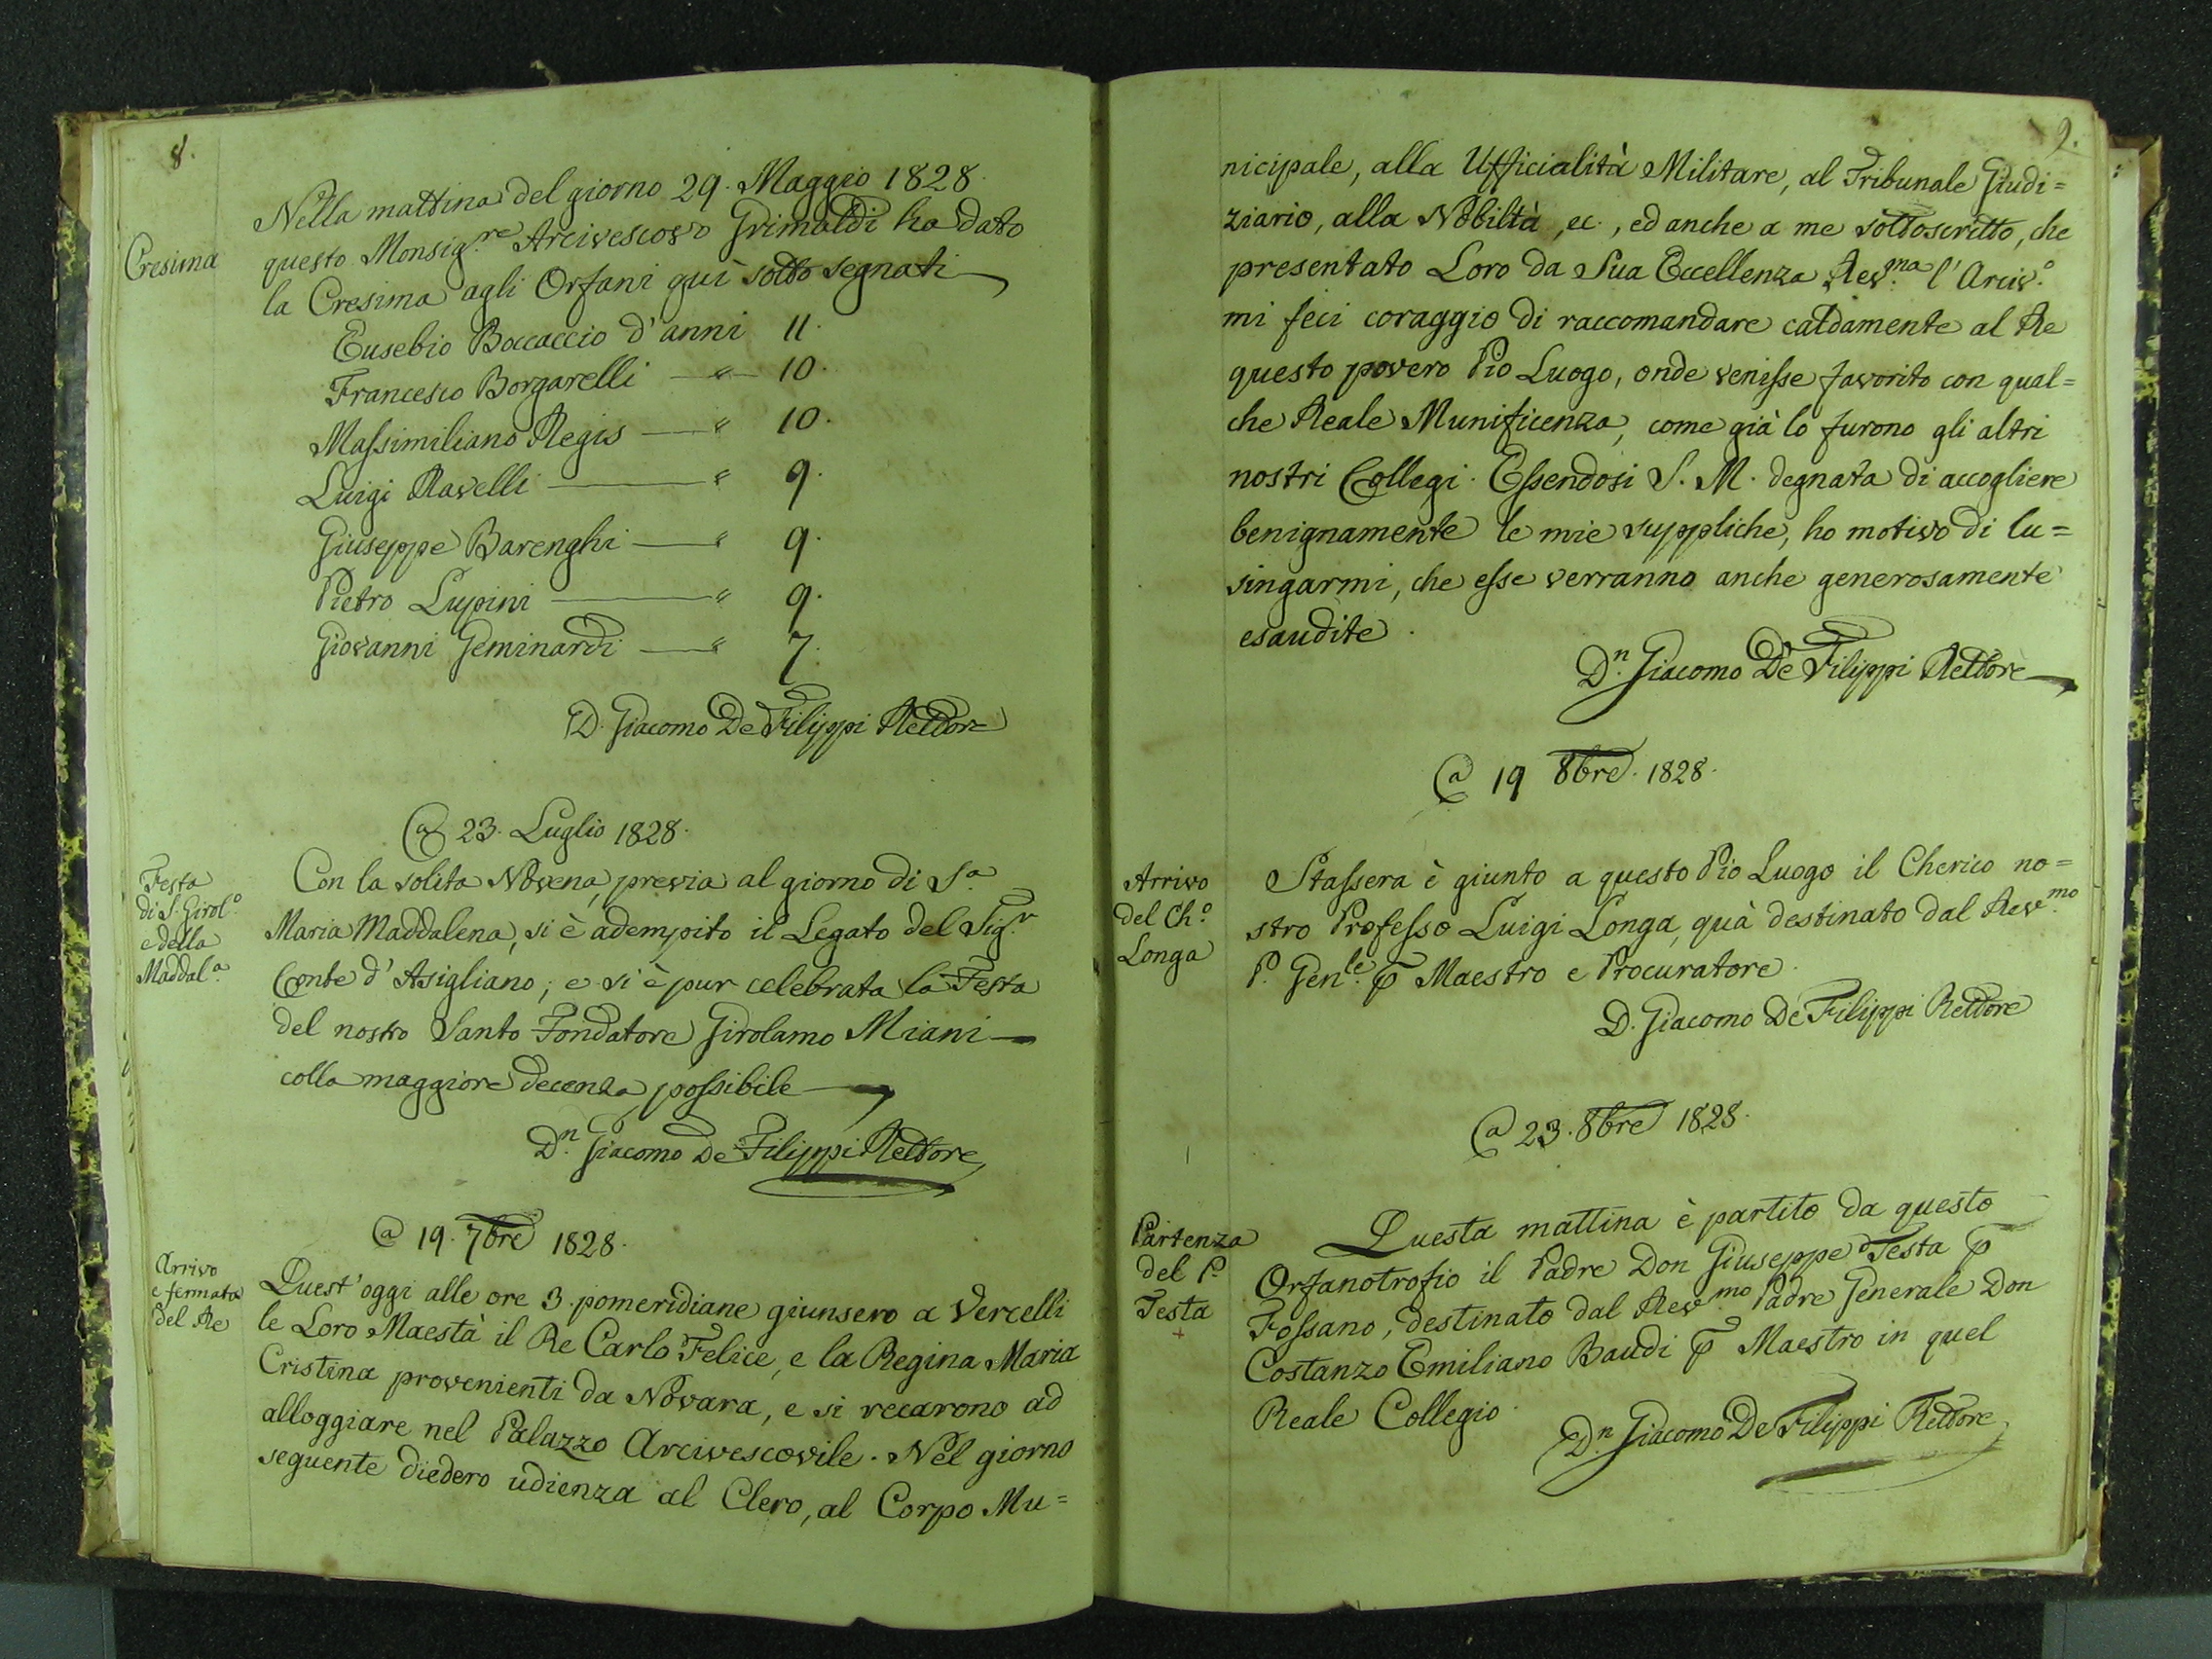 8.
Cresima
Nella mattina del giorno 29. Maggio 1828.
questo Monsig.re Arcivescovo Grimaldi ha dato
la Cresima agli Orfani quì sotto segnati
Eusebio Boccaccio d'anni 11.
Francesco Borgarelli — " — 10.
Massimiliano Regis — " 10.
Luigi Ravelli — " 9.
Giuseppe Barenghi — " 9.
Pietro Lupini — " 9.
Giovanni Geminardi — " 7.
D. Giacomo De Filippi Rettore
@ 23. Luglio 1828.
Festa
di S. Girol.o
e della
Maddal.a
Con la solita Novena previa al giorno di S.a
Maria Maddalena, si è adempito il Legato del Sig.r
Conte d'Asigliano; e si è pur celebrata la Festa
del nostro Santo Fondatore Girolamo Miani —
colla maggiore decenza possibile —
D.n Giacomo De Filippi Rettore
@ 19. 7bre 1828.
Arrivo
e fermata
del Re
Quest'oggi alle ore 3. pomeridiane giunsero a Vercelli
le Loro Maestà il Re Carlo Felice, e la Regina Maria
Cristina provenienti da Novara, e si recarono ad
alloggiare nel Palazzo Arcivescovile. Nel giorno
seguente diedero udienza al Clero, al Corpo Mu=
9.
nicipale, alla Ufficialità Militare, al Tribunale Giudi=
ziario, alla Nobiltà, ec., ed anche a me sottoscritto, che
presentato Loro da Sua Eccellenza Rev.ma l'Arciv.o
mi feci coraggio di raccomandare caldamente al Re
questo povero Pio Luogo, onde venisse favorito con qual=
che Reale Munificenza, come già lo furono gli altri
nostri Collegi. Essendosi S. M. degnata di accogliere
benignamente le mie suppliche, ho motivo di lu=
singarmi, che esse verranno anche generosamente
esaudite.
D.n Giacomo De Filippi Rettore
@ 19 8bre. 1828.
Arrivo
del Ch.o
Longa
Stassera è giunto a questo Pio Luogo il Cherico no=
stro Professo Luigi Longa, quà destinato dal Rev.mo
P. Gen.le ꝑ Maestro e Procuratore.
D. Giacomo De Filippi Rettore
@ 23. 8bre 1828.
Partenza
del P.
Testa
+
Questa mattina è partito da questo
Orfanotrofio il Padre Don Giuseppe Testa ꝑ
Fossano, destinato dal Rev.mo Padre Generale Don
Costanzo Emiliano Baudi ꝑ Maestro in quel
Reale Collegio.
D.n Giacomo De Filippi Rettore